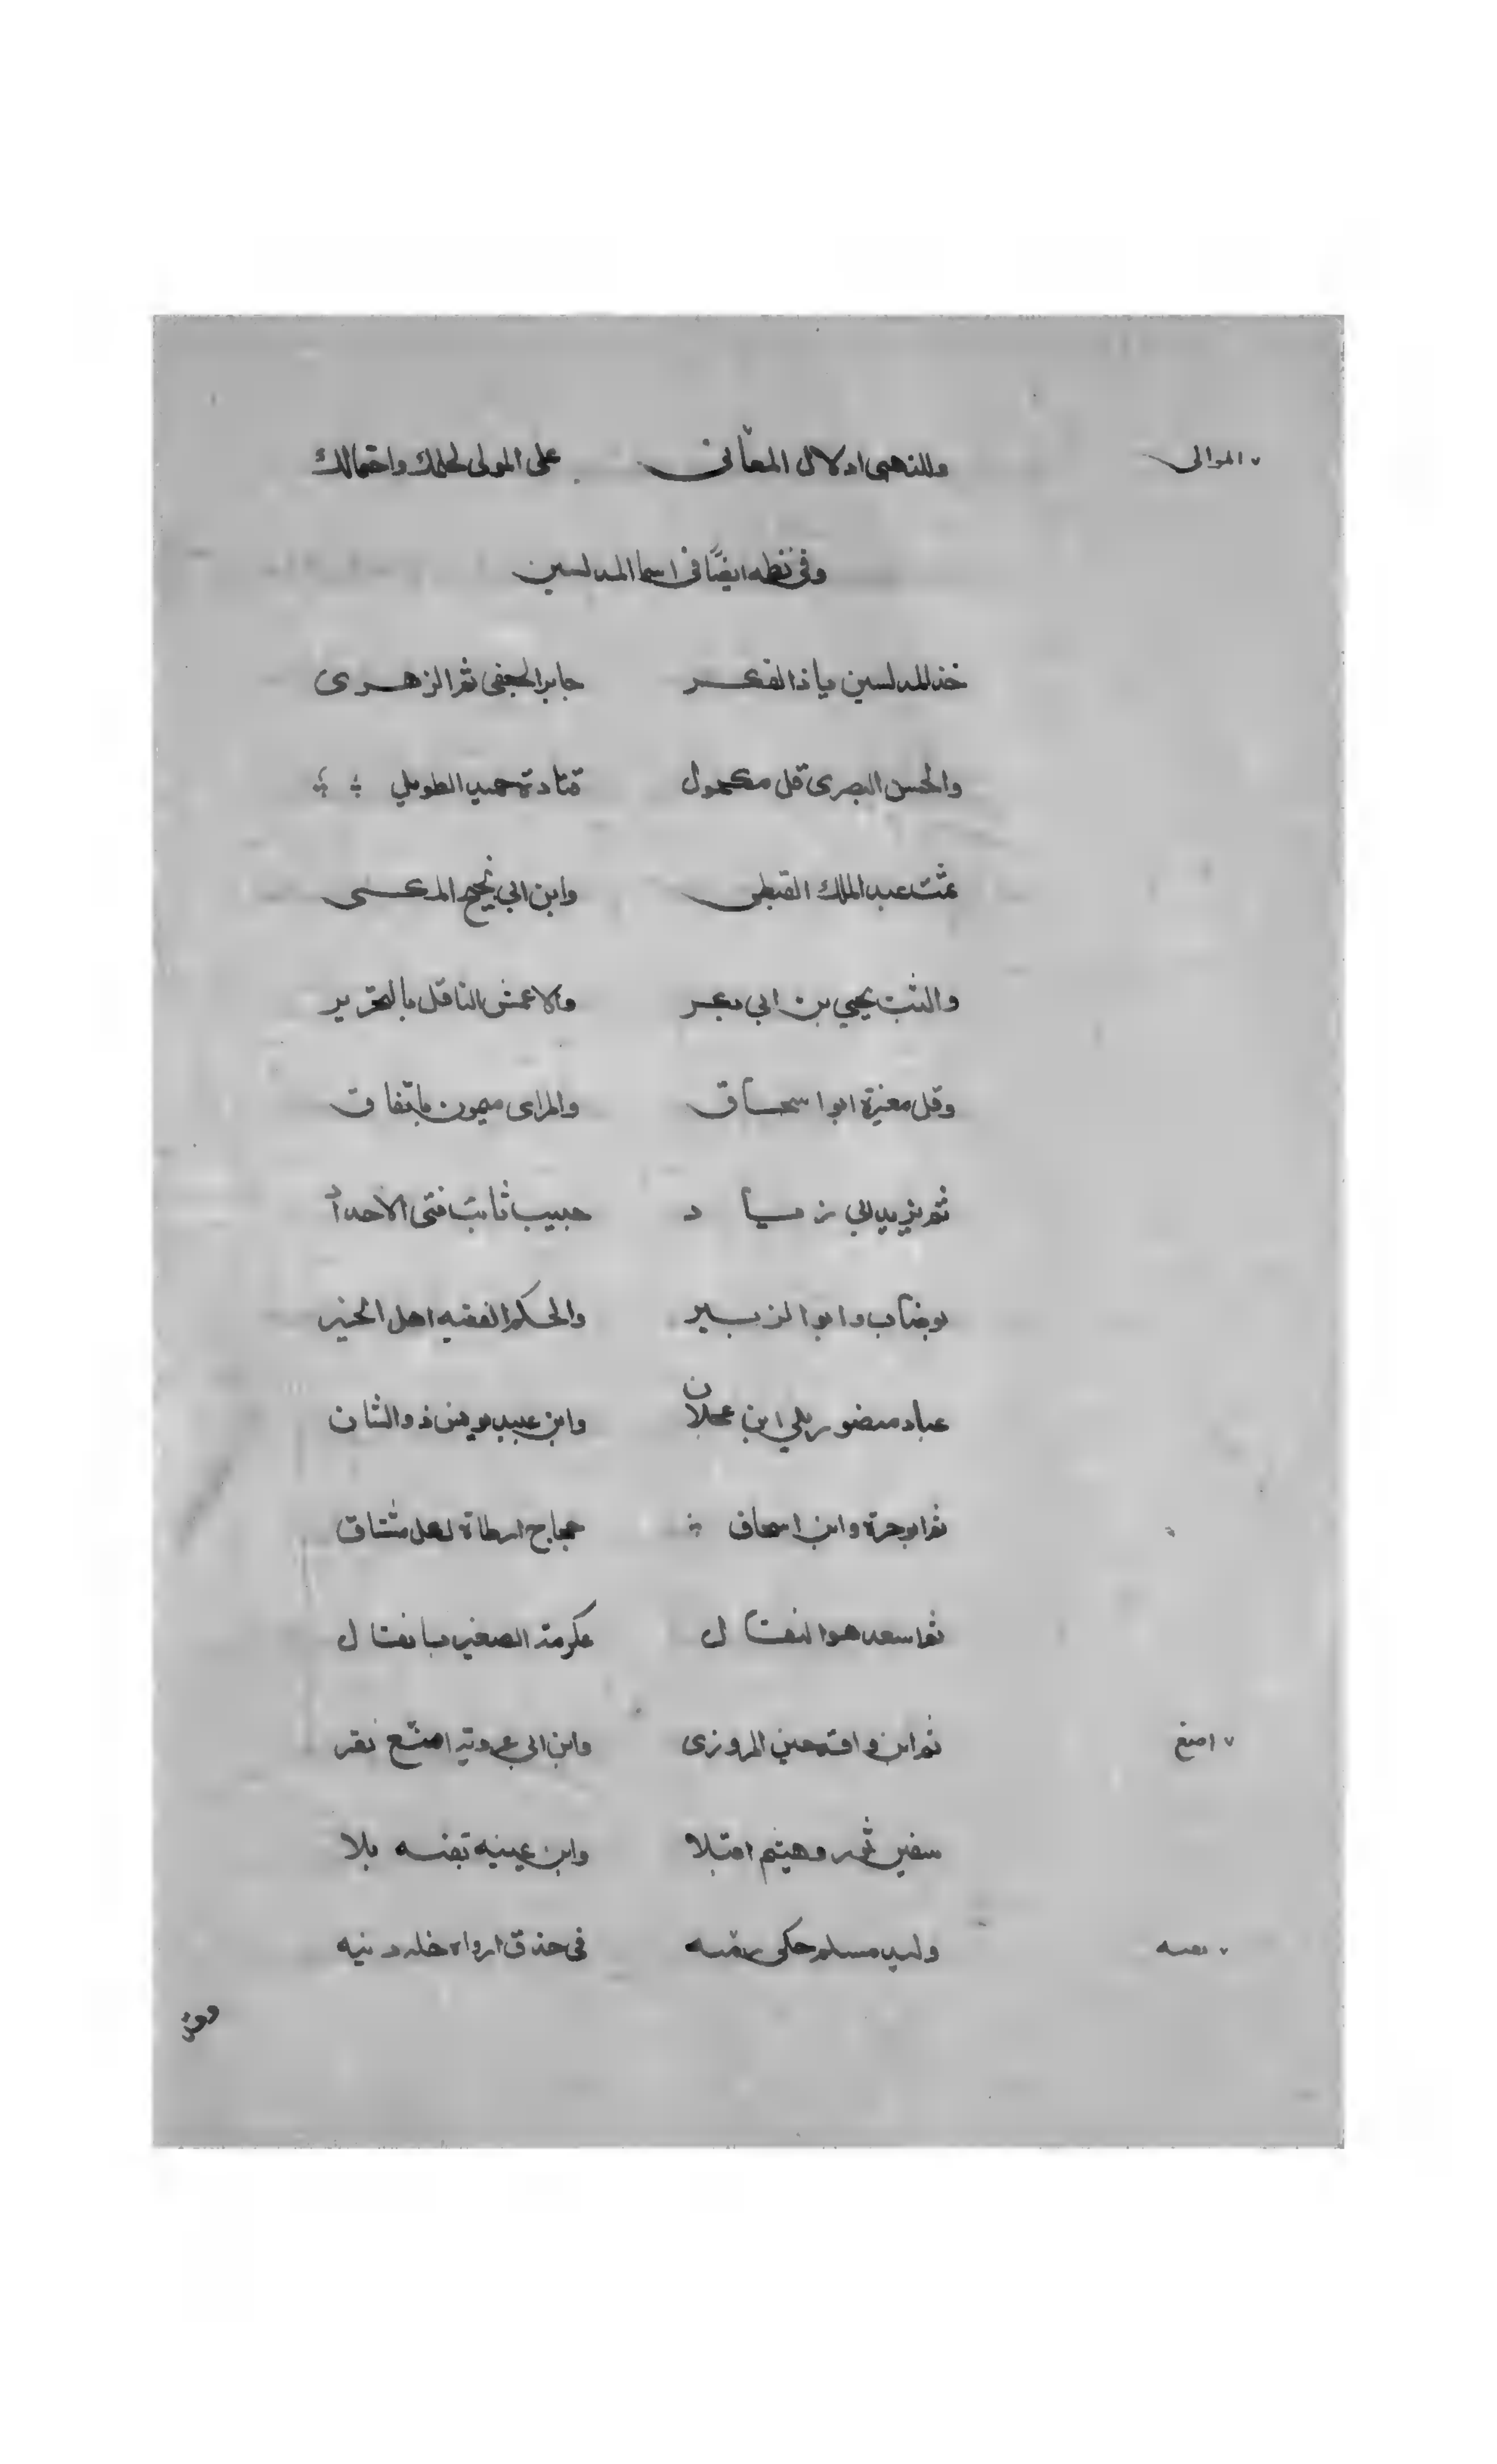 وللذهبى ادلال المعانى على المولى لحلمك واحتمالك
٧ الموالى
وفى نظمه ايضًا فى اسما المدلسين
خذ المدلسين ياذا الفكر جابر الجعفى ثم الزهرى
والحسن البصرى قل مكحول قتادة حميد الطويل
ثمت عبد الملك القبطى وابن ابي نجيح المكى
والثبت يحيي بن ابي كثير والاعمش الناقل بالتحرير
وقل مغيرة ابو اسحاق والمراى ميمون باتفاق
ثم يزيد ابي زياد حبيب ثابت فتى الاجداد
بوجناب وابو الزبير والحكم الفقيه اهل الخير
عباد منصور بلي ابن عجلان وابن عبيد يونس ذو الشان
ثم ابو حرة وابن اسحاق حجاج ارطاة لكل مشتاق
ثم ابو سعد هو البقال عكرمة الصغير
ثم ابن واقد حسين المروزى وابن ابى عروبة اصنع تفز
٧ اصغ
سفين ثم هشيم وابن عيينه بلا
وليد مسلم حكى بقيه فى حذف
٧ بقيه